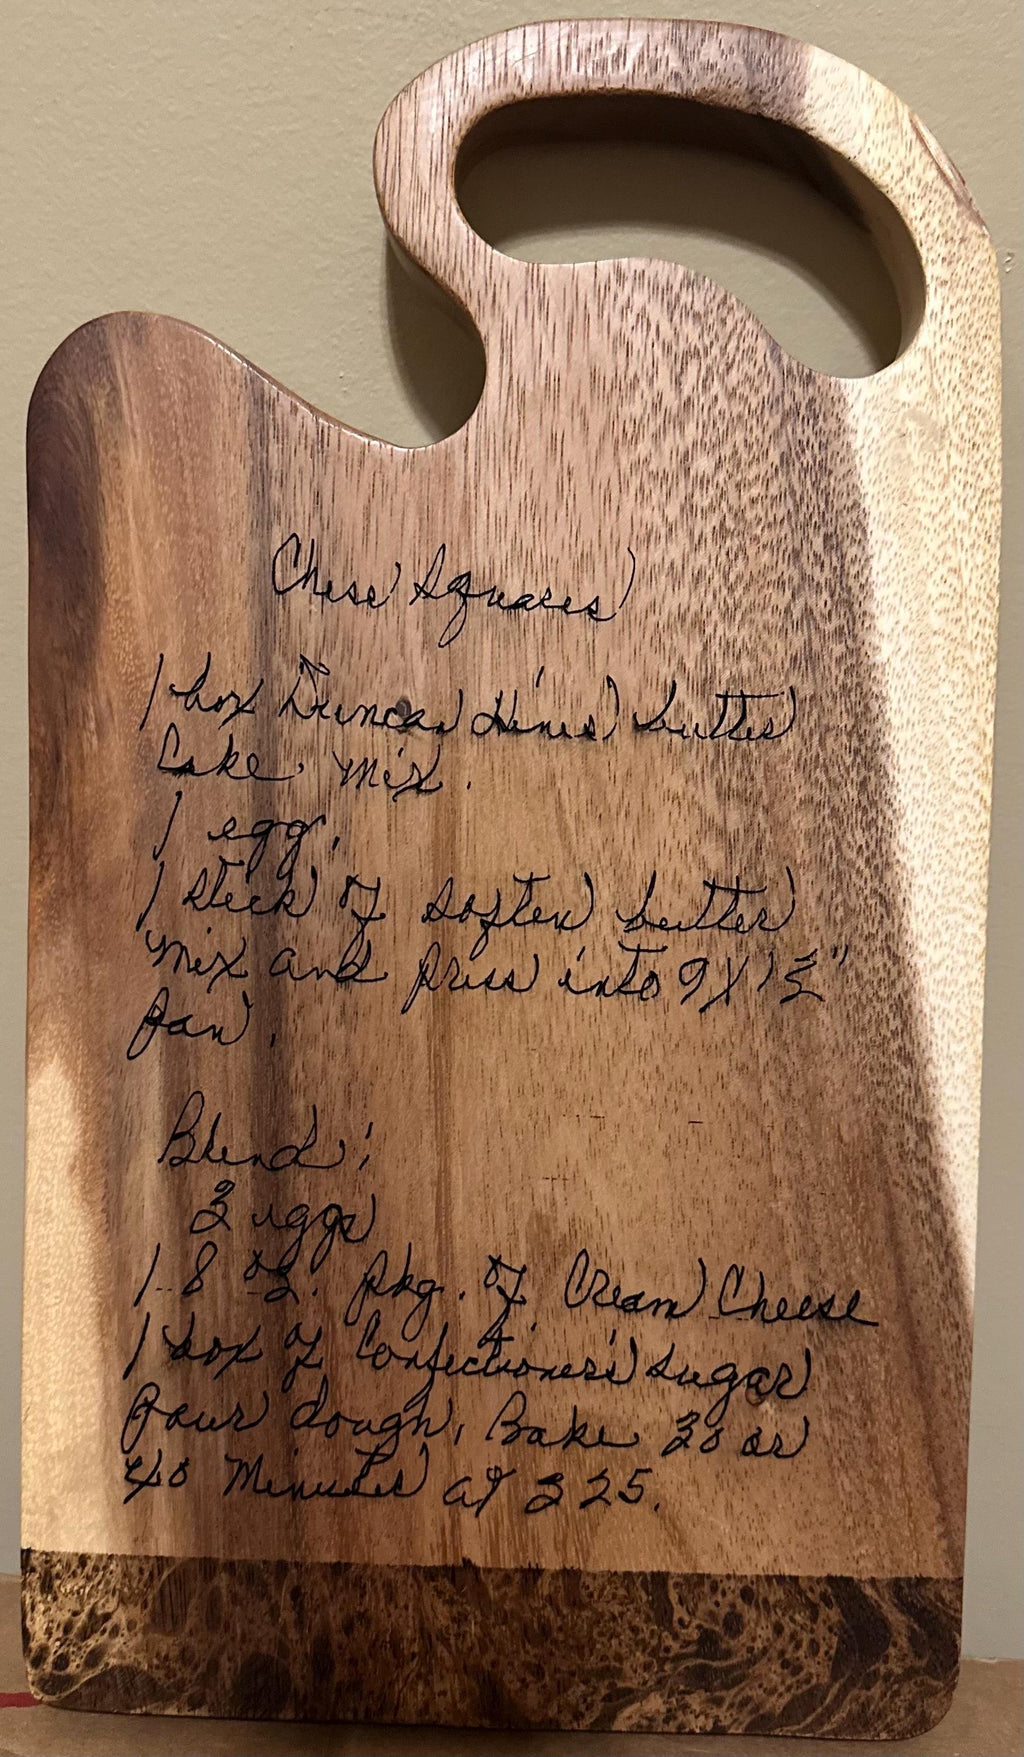 Chese Squares
1 box Duncan Hines butter
Cake mix.
1 egg.
1 stick of soften butter
mix and press into 9X13"
pan.
Blend:
3 eggs
1 8 oz. pkg. of Cream Cheese
1 box of Confectioners sugar
Pour dough, Bake 30 or
40 Minutes at 325.